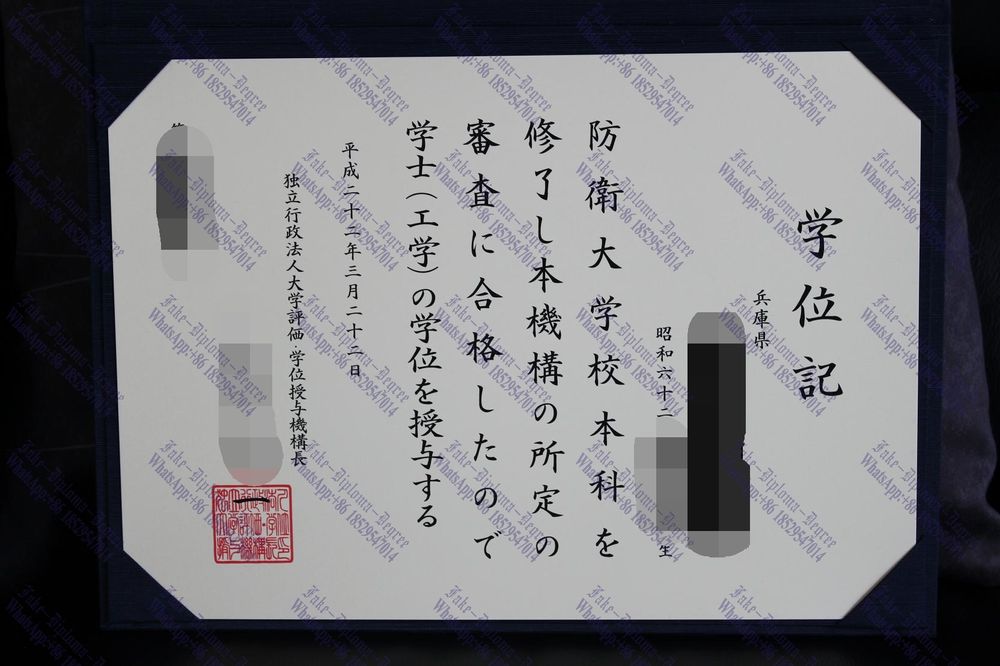 学位記
兵庫県
昭和六十二
生
防衛大学校本科を
修了し本機構の所定の
審査に合格したので
学士（工学）の学位を授与する
平成二十二年三月二十二日
独立行政法人大学評価・学位授与機構長
一
Fake-Diploma-Degree
WhatsApp:+86 18529547014